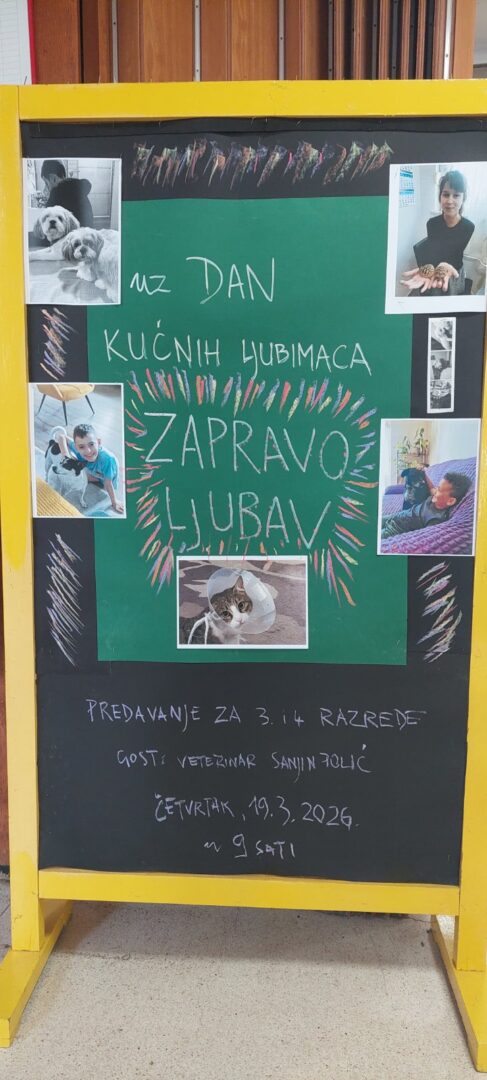 uz DAN
KUĆNIH LJUBIMACA
ZAPRAVO
LJUBAV
PREDAVANJE ZA 3. i 4 RAZREDE
GOST: VETERINAR SANJIN JOLIĆ
ČETVRTAK, 19.3.2026.
u 9 SATI